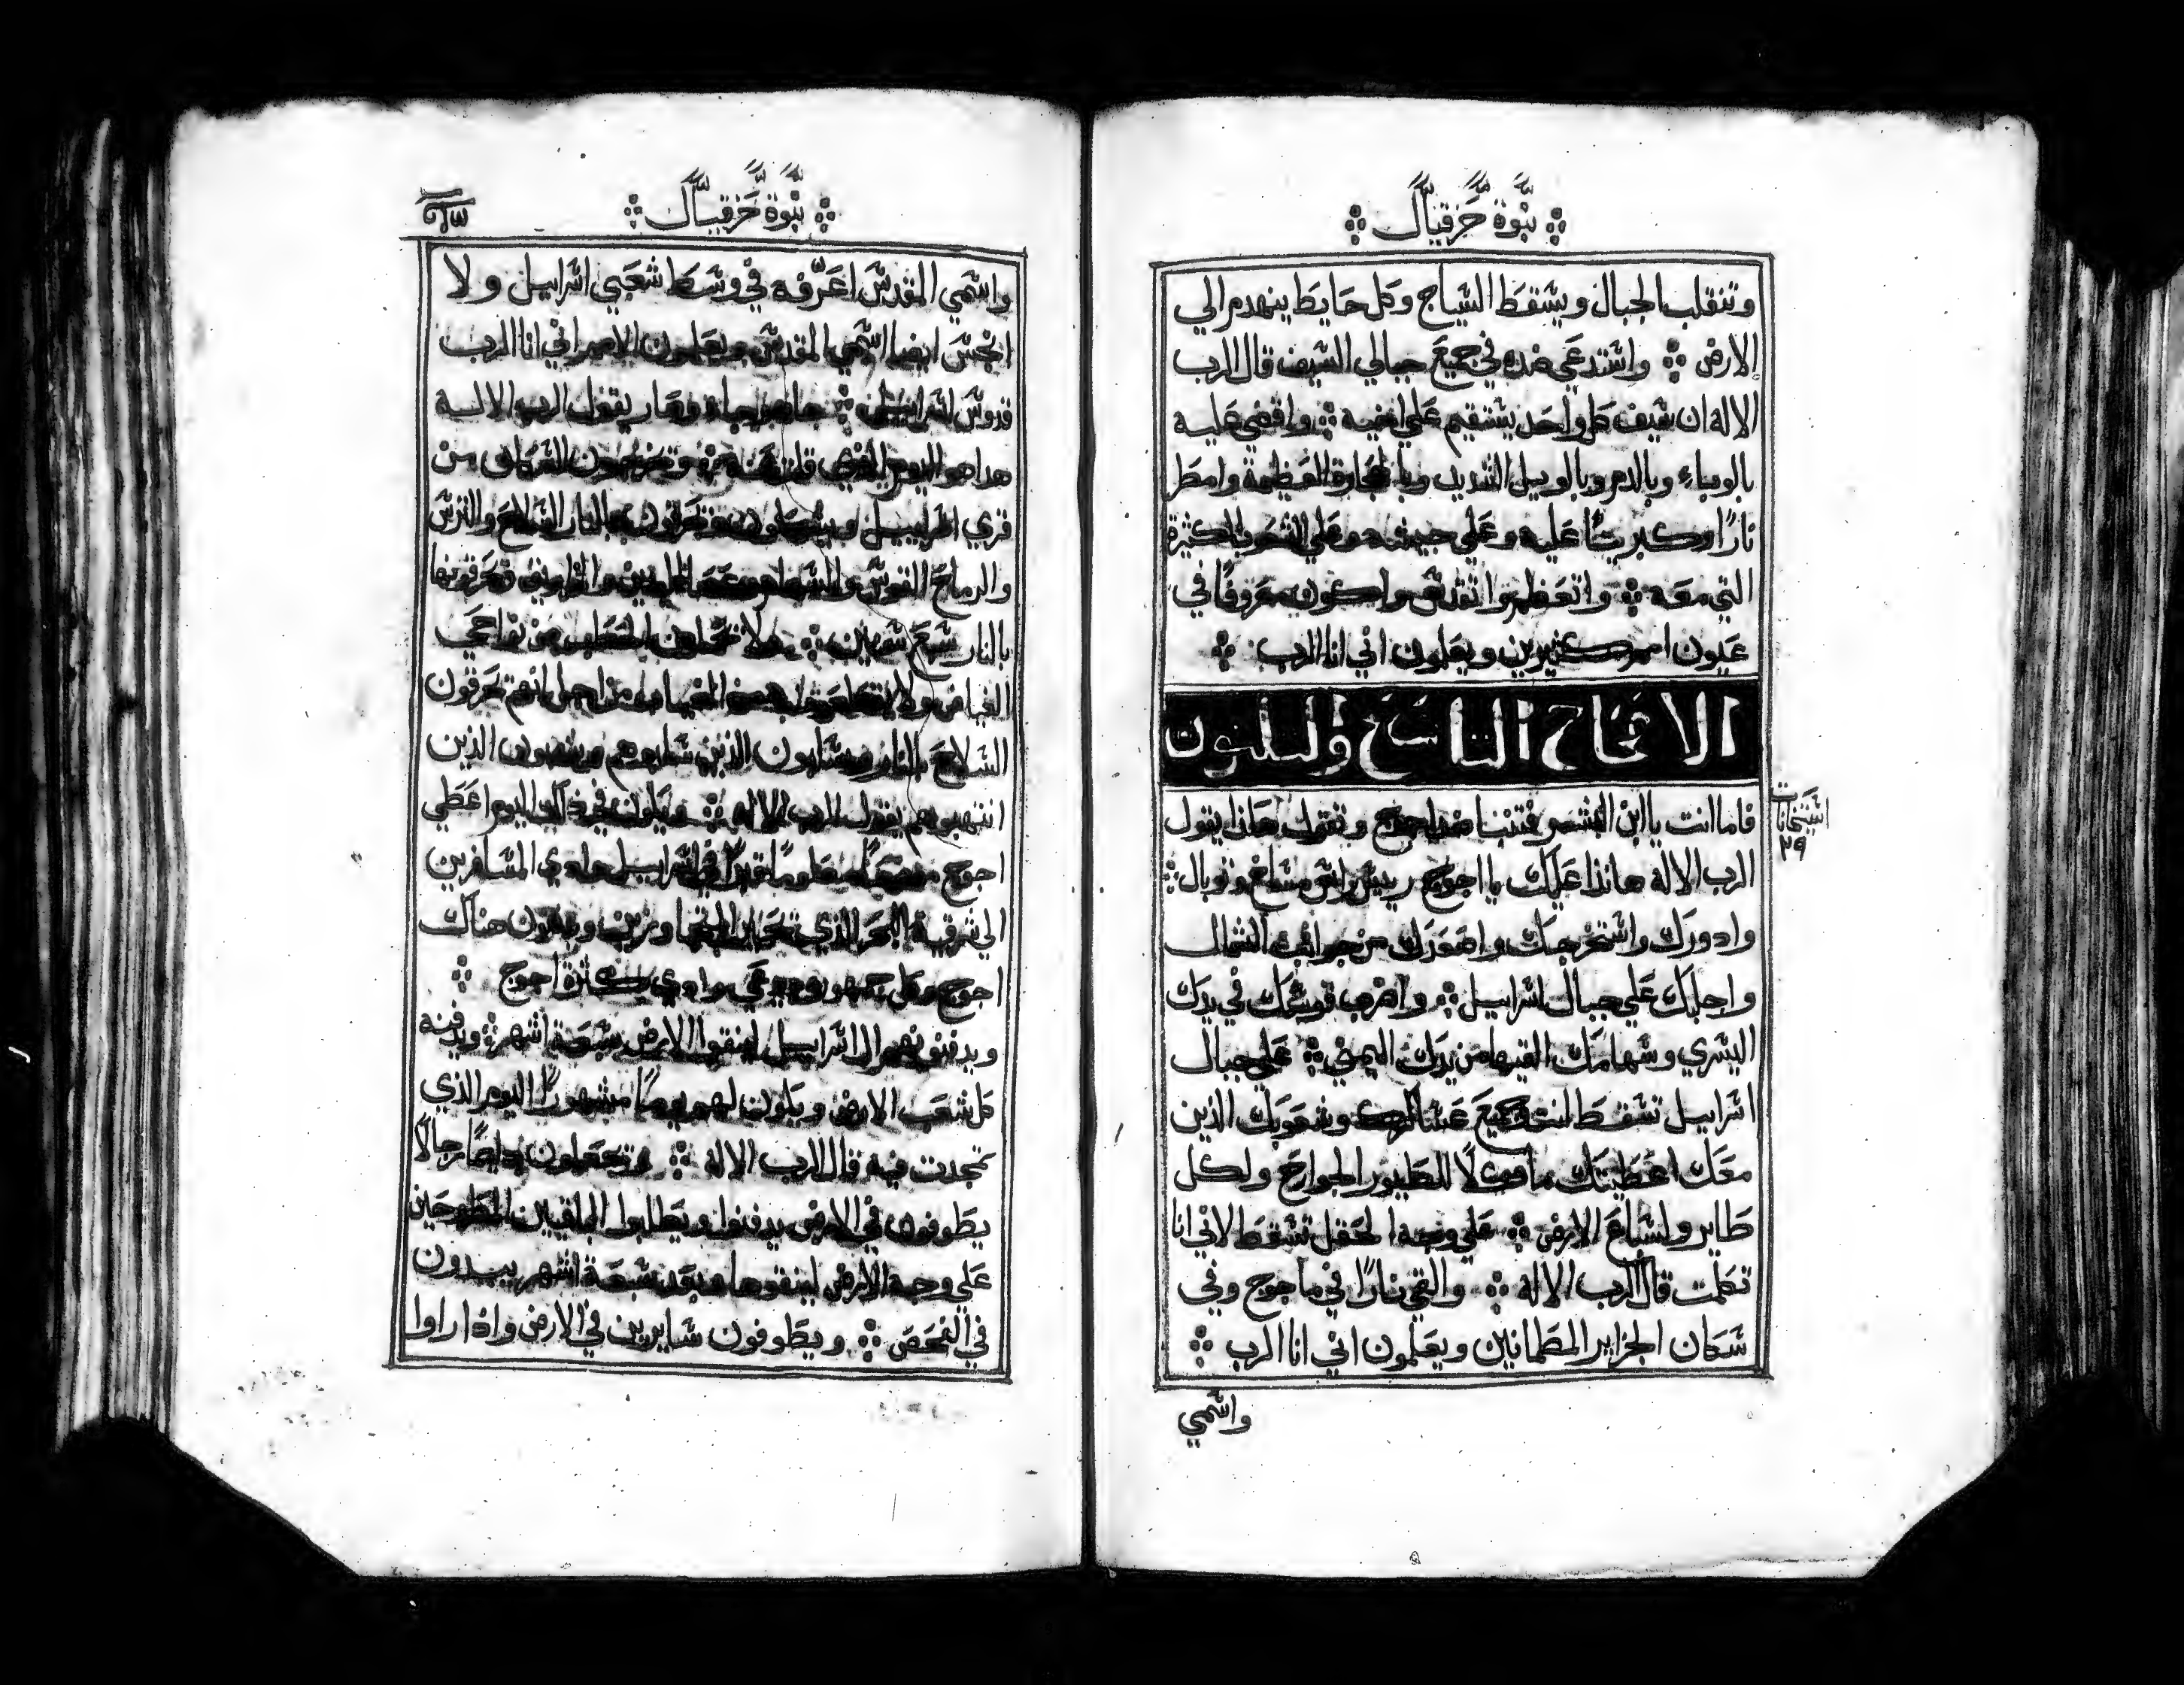 نبوة حزقيال
وتنقلب الجبال ويسقط السياج وكل حايط ينهدم الي
الارض ܀ واستدعي ضده في جميع جبالي السيف قال الرب
الاله ان سيف كل واحد يستقيم علي اخيه ܀ واقضي عليه
بالوباء وبالدم وبالوبيل الشديد وبالحجارة العظيمة وامطر
نارًا وكبريتًا عليه وعلي جيشه وعلي الشعوب الكثيرة
التي معه ܀ واتعظم واتقدس واكون معروفًا في
عيون امم كثيرين ويعلمون اني انا الرب ܀
الافتحاح التاسع والثلثون
فاما انت يا ابن البشر فتنبا ضد اجوج وتقول هاذا يقول
الرب الاله هانذا عليك يا اجوج رييس راس مشاخ وتوبال ܀
وادورك واستخرجك واصعدك من جوانب الشمال
واجلبك علي جبال اسراييل ܀ واضرب قوسك في يدك
اليسري وسهامك القيها من يدك اليمني ܀ علي جبال
اسراييل تسقط انت وجميع عساكرك وشعوبك الذين
معك اعطيتك ماكلًا للطيور الجوارح ولكل
طاير ولسباع الارض ܀ علي وجه الحقل تسقط لاني انا
تكلمت قال الرب الاله ܀ والقي نارًا في ماجوج وفي
سكان الجزاير المطمانين ويعلمون اني انا الرب ܀
واسمي
اسحاحات
٣٩
نبوة حزقيال
واسمي المقدس اعرّفه في وسط شعبي اسراييل ولا
انجس ايضا اسمي المقدس ويعلمون الامم اني انا الرب
قدوس اسراييل ܀ ها هو جاء وصار يقول الرب الاله
هدا هو اليوم الذي قلت عنه ܀ وتخرجون السكان من
قري اسراييل ويشعلون وتحرقون بالنار السلاح والترس
والرماح القوس والسهام وعصا اليدين فتحرقونها
بالنار سبع سنين ܀ ولا تحملون الحطب من نواحي
الغياض ولا من الغياض من اجل انهم تحرقون
السلاح بالنار ويسلبون الذين سلبوهم وينهبون الذين
انتهبوهم يقول الرب الاله ܀ ويكون في ذلك اليوم اعطي
اجوج موضعًا معلومًا قبرًا في اسراييل وادي المسافرين
الي شرقية البحر الذي ويدفنون هناك
اجوج وكل جمهوره ويدعي وادي كثرة اجوج ܀
ويدفنونهم ال اسراييل لينقوا الارض سبعة اشهر ܀ ويدفنه
كل شعب الارض ويكون لهم يومًا مشهورًا اليوم الذي
تمجدت فيه قال الرب الاله ܀ وتجعلون دايمًا رجالًا
يطوفون في الارض يدفنوا ويطلبوا الباقيين المطروحين
علي وجه الارض لينقوها وبعد سبعة اشهر يبيدون
في الفحص ܀ ويطوفون سايرين في الارض واذا راوا